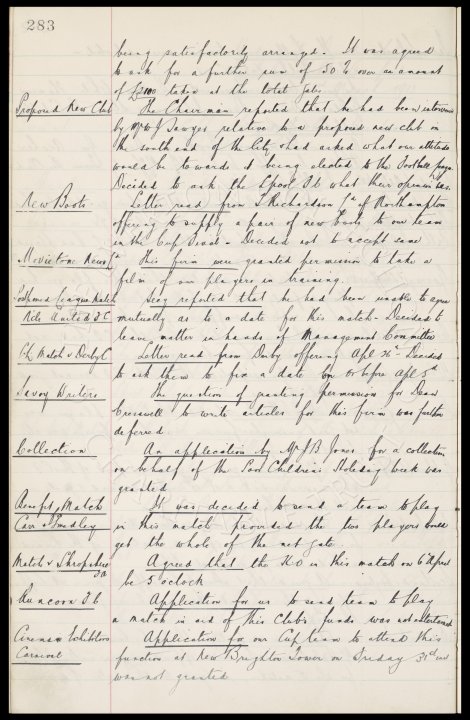 283
being satisfactorily arranged. It was agreed
to ask for a further sum of 50% over an amount
of £2100 taken at the total gate.
Proposed New Club The Chairman reported that he had been interviewed
by Mr W J Sawyer relative to a proposed new club on
the south end of the City & had asked what our attitude
would be towards it being elected to the Football
Decided to ask the Lpool F.C what their opinion was.
New Boots Letter read from Richardson of Northampton
offering to supply a pair of new boots to our team
in the Cup Final - Decided not to accept same
Movietone News Co This firm were granted permission to take a
film of our players in training.
Postponed League Match Secy reported that he had been unable to agree
Ncle United F.C mutually as to a date for this match - Decided to
leave matter in hands of Management Committee
Lge Match v Derby C Letter read from Derby offering Apl Decided
to ask them to fix a date on or before Apl
Savoy Writers The question of granting permission for Dean
Cresswell to write articles for this firm was further
deferred.
Collection An application by Mr J B Jones for a collection
on behalf of the Poor Children's Holiday week was
granted
Benefit Match It was decided to send a team to play
Carr & Smalley in this match provided the two players could
get the whole of the net gate.
Match v Shropshire F.A Agreed that the K.O in this match on 6th April
be 5 oclock
Runcorn F.C Application for us to send team to play
a match in aid of this Club's funds was not entertained
Cinema Exhibitors Application for our Cup team to attend this
Carnival function at New Brighton Tower on Friday 31st inst
was not granted